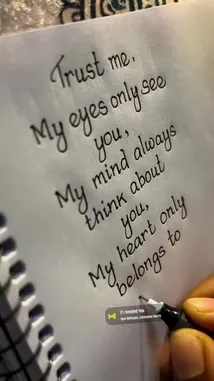 Trust me,
My eyes only see
you,
My mind always
think about
you,
My heart only
belongs to
If I Needed You